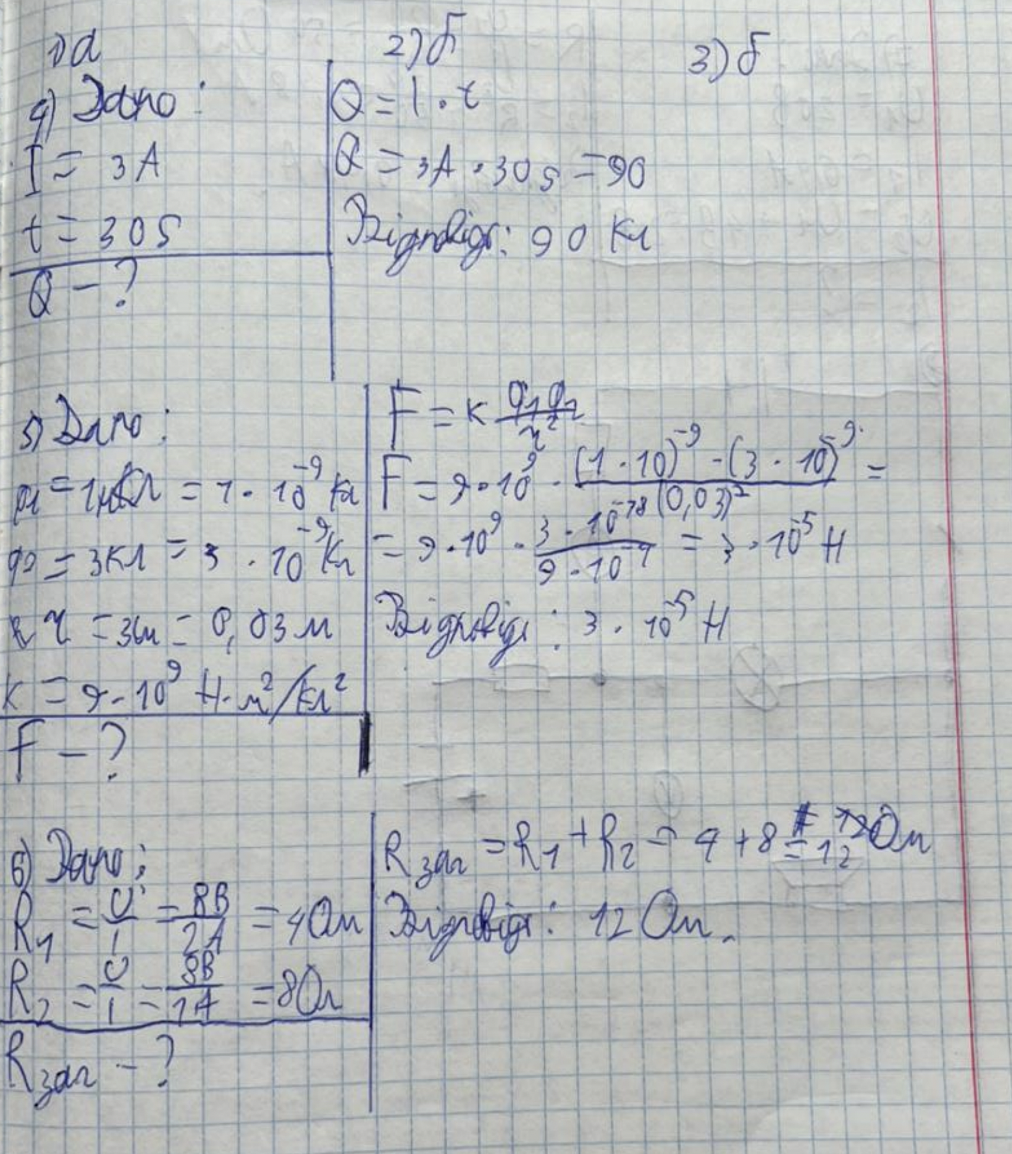 1) а 2) б 3) б
4) Дано:
I = 3A
t = 30s
Q - ?
Q = I · t
Q = 3A · 30s = 90
Відповідь: 90 Кл
5) Дано:
q1 = 1нКл = 1 · 10⁻⁹ Кл
q2 = 3Кл = 3 · 10⁻⁹ Кл
r = 3см = 0,03 м
k = 9 · 10⁹ Н·м²/Кл²
F - ?
F = k q1 q2 / r²
F = 9 · 10⁹ · (1 · 10)⁻⁹ · (3 · 10)⁻⁹ / (0,03)² =
= 9 · 10⁹ · 3 · 10⁻¹⁸ / 9 · 10⁻⁴ = 3 · 10⁻⁵ Н
Відповідь: 3 · 10⁻⁵ Н
6) Дано:
R1 = U / I = 8В / 2А = 4 Ом
R2 = U / I = 8В / 1А = 8 Ом
Rзаг - ?
Rзаг = R1 + R2 = 4 + 8 = 12 Ом
Відповідь: 12 Ом.